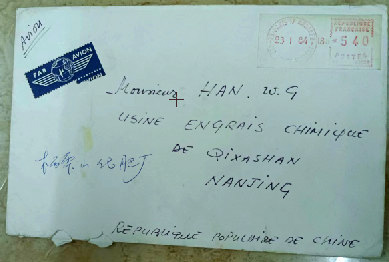 Avion
REPUBLIQUE
FRANÇAISE
23-1 84
540
POSTES
PAR AVION
Monsieur HAN. W.G
USINE ENGRAIS CHIMIQUE
DE QIXASHAN
NANJING
REPUBLIQUE POPULAIRE DE CHINE